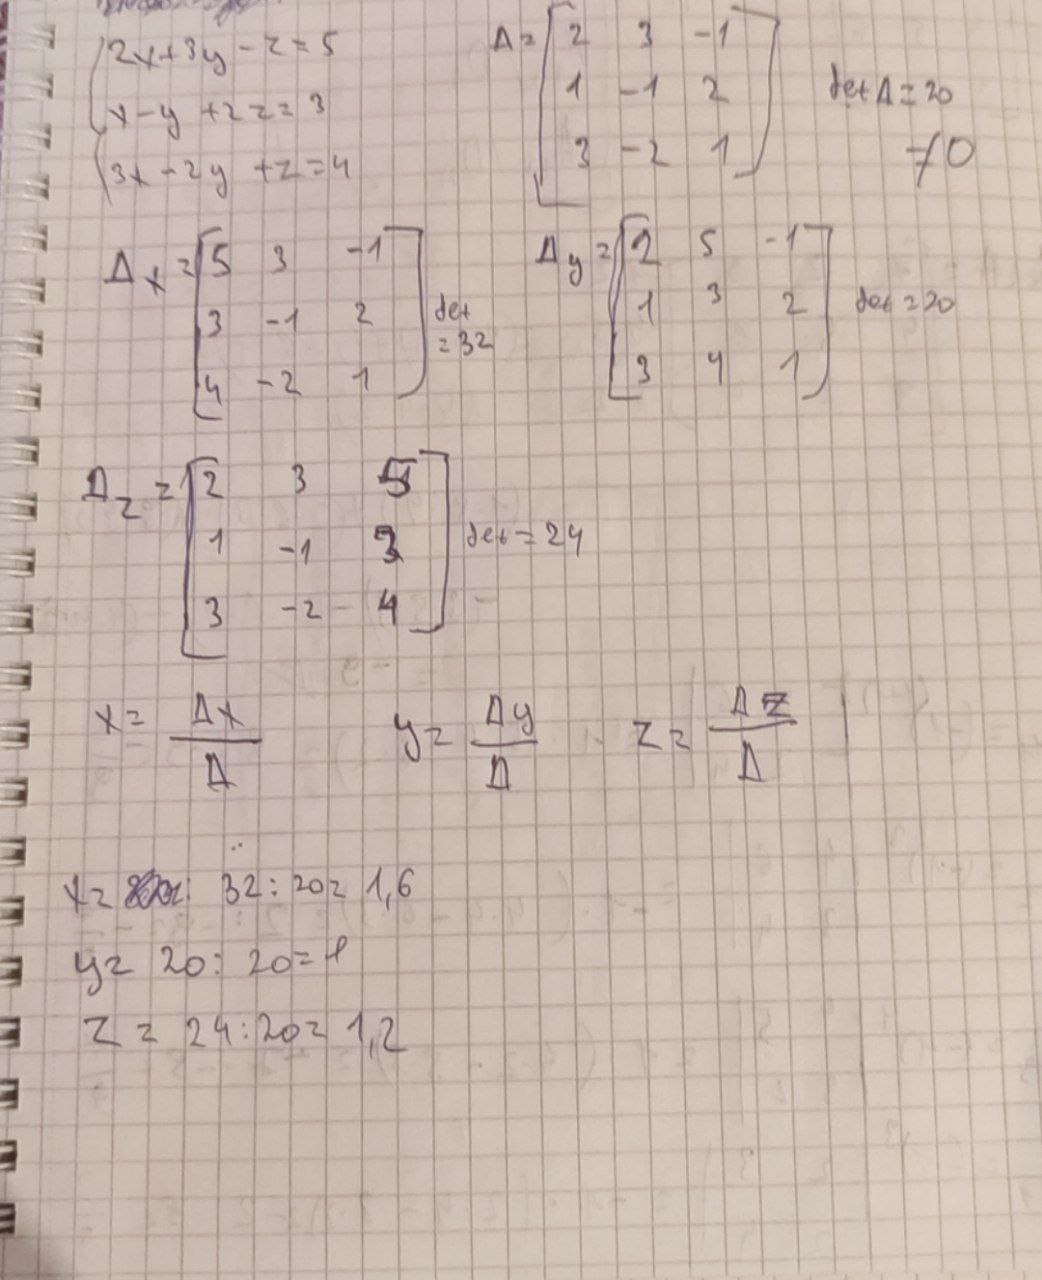 2x+3y-z=5
x-y+2z=3
3x-2y+z=4
Δ=[2 3 -1
1 -1 2
3 -2 1]
det Δ=20
≠0
Δx=[5 3 -1
3 -1 2
4 -2 1]
det
=32
Δy=[2 5 -1
1 3 2
3 4 1]
det=20
Δz=[2 3 5
1 -1 3
3 -2 4]
det=24
x= Δx/Δ y= Δy/Δ z= Δz/Δ
x= 32:20= 1,6
y= 20:20=1
z= 24:20= 1,2